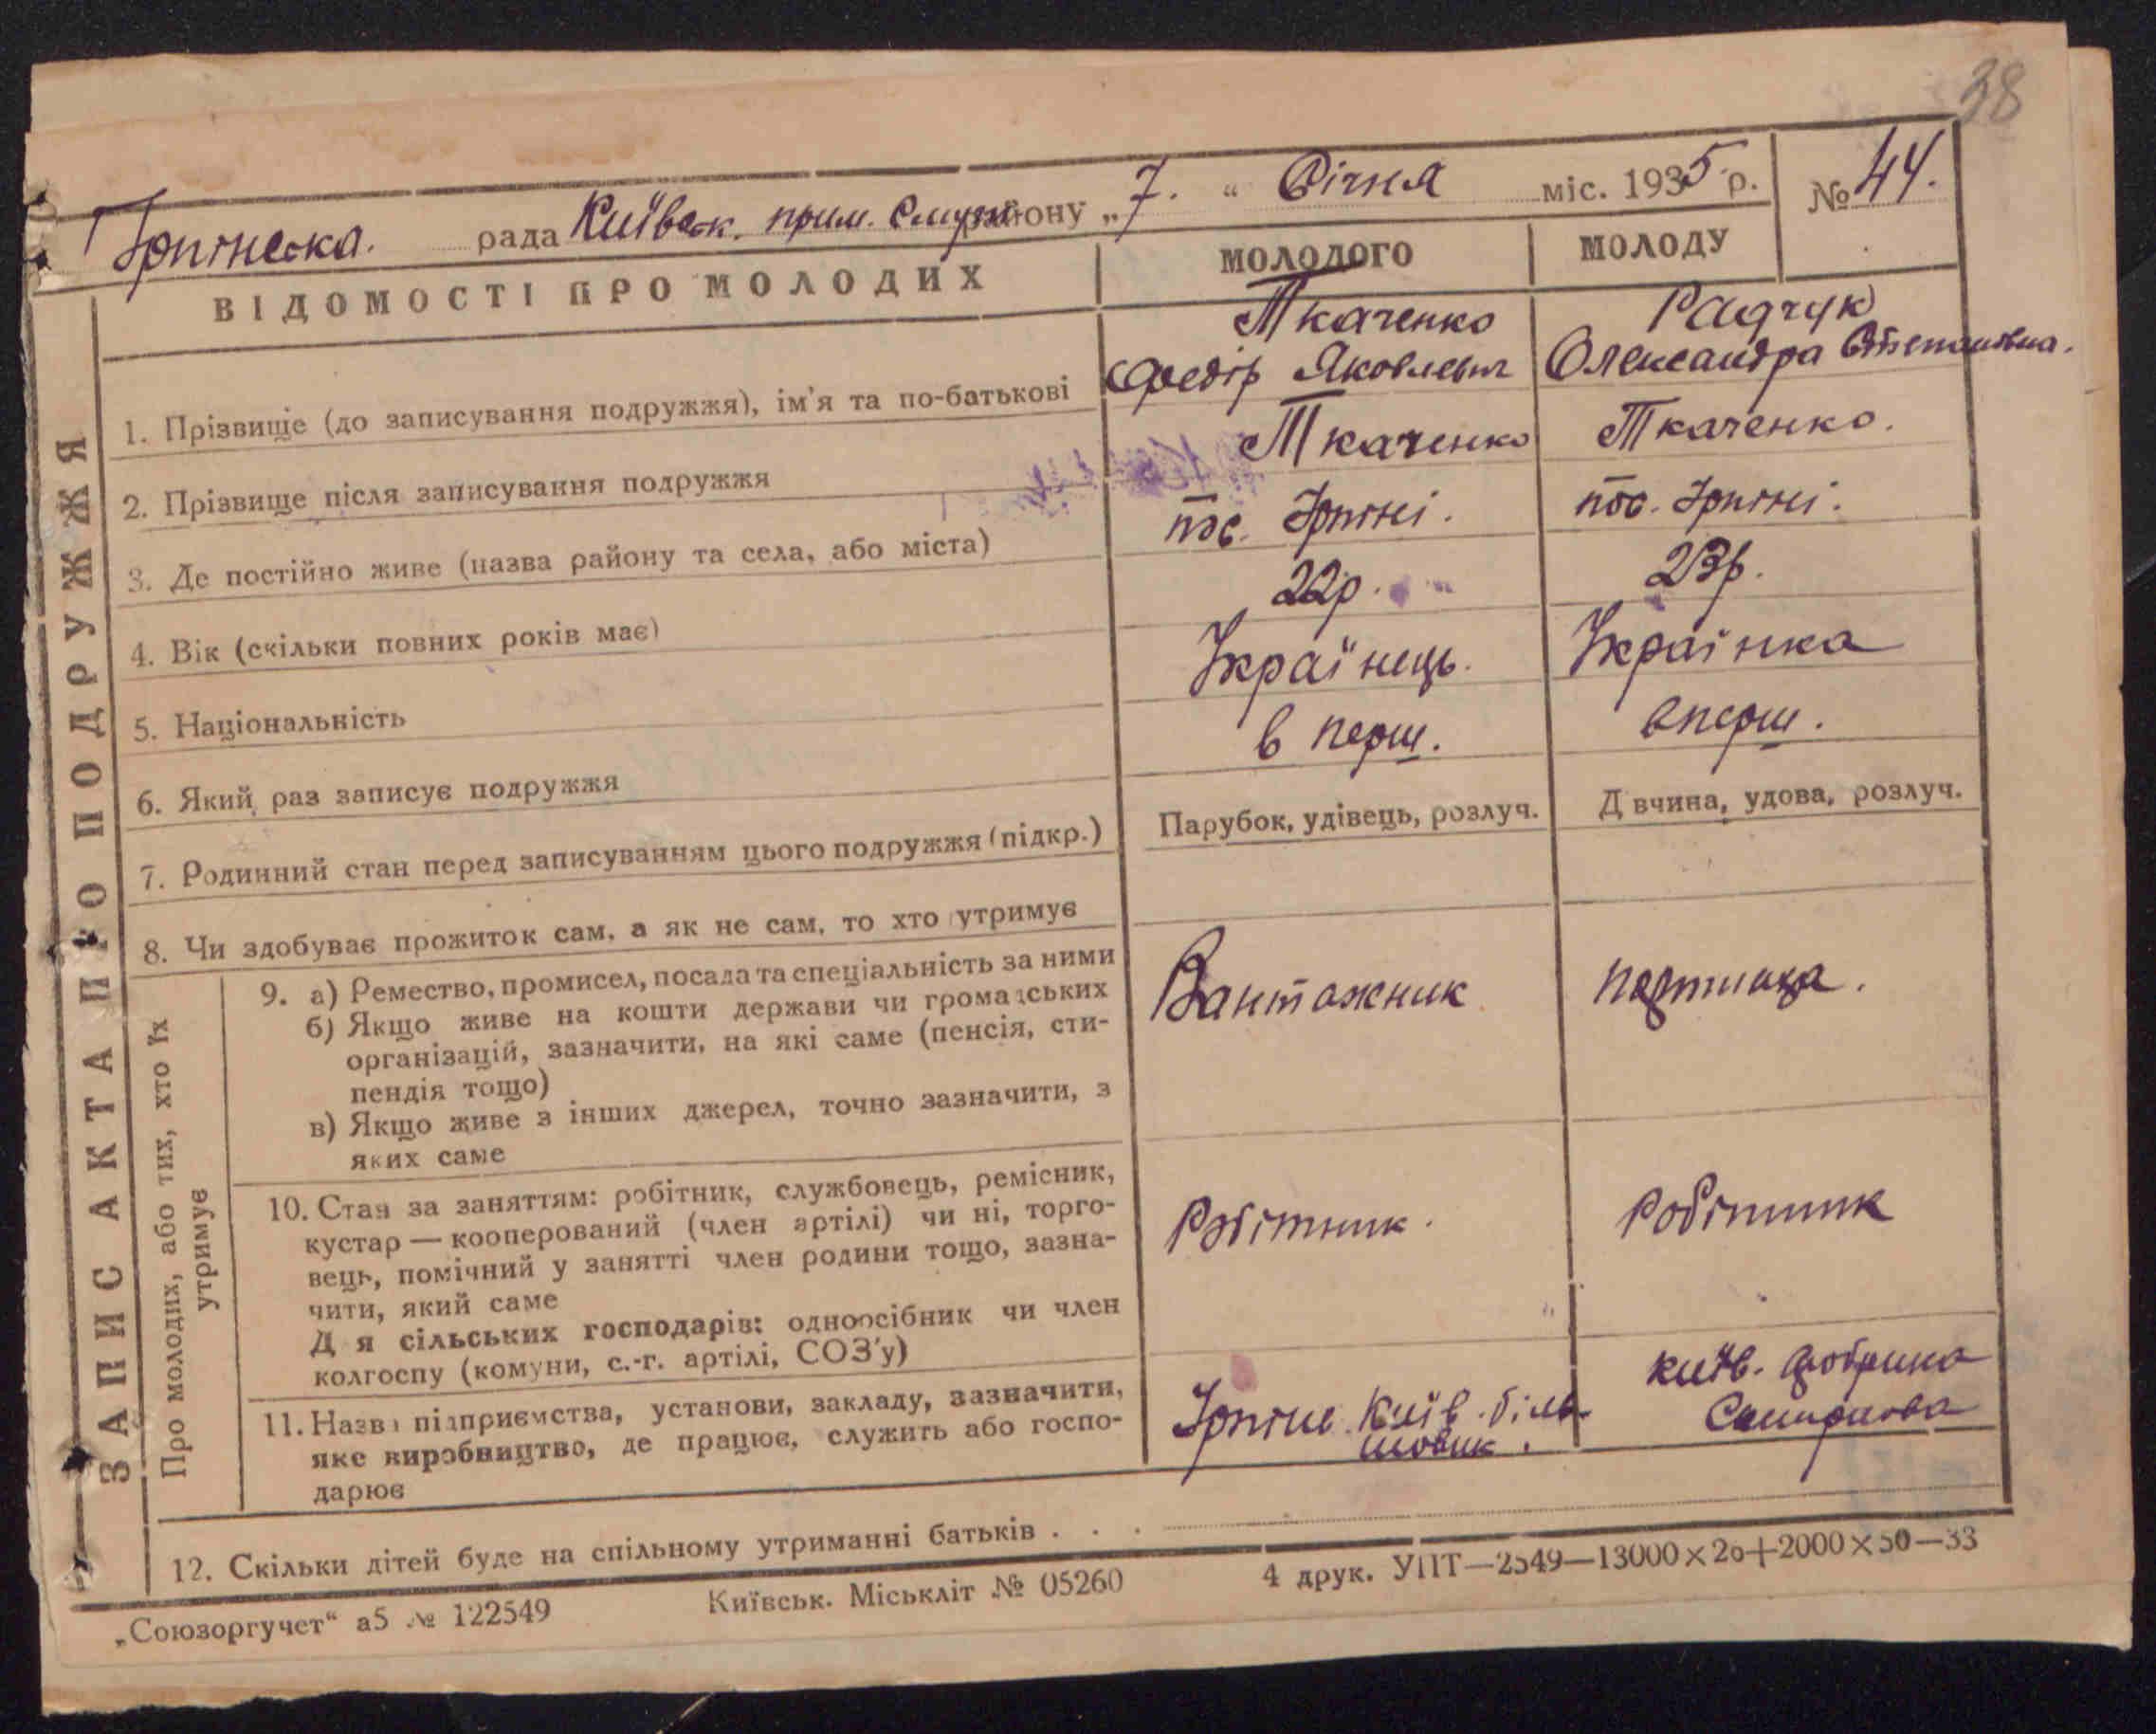 38
Ірпінська. рада Київськ. прим. Смуги району „7. “ Січня міс. 1935 р. № 44.
ВІДОМОСТІ ПРО МОЛОДИХ
МОЛОДОГО
МОЛОДУ
ЗАПИС АКТА ПРО ПОДРУЖЖЯ
1. Прізвище (до записування подружжя), ім'я та по-батькові
Ткаченко
Федір Яковлевич
Радчук
Олександра Степановна.
2. Прізвище після записування подружжя
Ткаченко
Ткаченко.
3. Де постійно живе (назва району та села, або міста)
пос. Ірпіні.
пос. Ірпіні.
4. Вік (скільки повних років має)
22р.
23р.
5. Національність
Українець.
Українка
6. Який раз записує подружжя
в перш.
вперш.
7. Родинний стан перед записуванням цього подружжя (підкр.)
Парубок, удівець, розлуч.
Д вчина, удова, розлуч.
8. Чи здобуває прожиток сам, а як не сам, то хто утримує
Про молодих, або тих, хто їх
утримує
9. а) Ремество, промисел, посада та спеціальність за ними
б) Якщо живе на кошти держави чи громадських
організацій, зазначити, на які саме (пенсія, сти-
пендія тощо)
в) Якщо живе з інших джерел, точно зазначити, з
яких саме
Вантажник
10. Стан за заняттям: робітник, службовець, ремісник,
кустар — кооперований (член артілі) чи ні, торго-
вець, помічний у занятті член родини тощо, зазна-
чити, який саме
Д я сільських господарів: одноосібник чи член
колгоспу (комуни, с.-г. артілі, СОЗ'у)
Робітник.
Робітник
11. Назва підприємства, установи, закладу, зазначити,
яке виробництво, де працює, служить або госпо-
дарює
Ірпінь Київ. біль-
шовик.
київ. фабрика
12. Скільки дітей буде на спільному утриманні батьків . . .
„Союзоргучет“ а5 № 122549
Київськ. Міськліт № 05260
4 друк. УПТ—2549—13000×20+2000×50—33